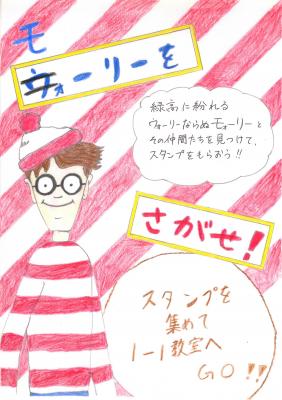 モ
ウォーリーを
緑高に紛れる
ウォーリーならぬモォーリーと
その仲間たちを見つけて、
スタンプをもらおう!!
さがせ!
スタンプを
集めて
1-1教室へ
GO!!